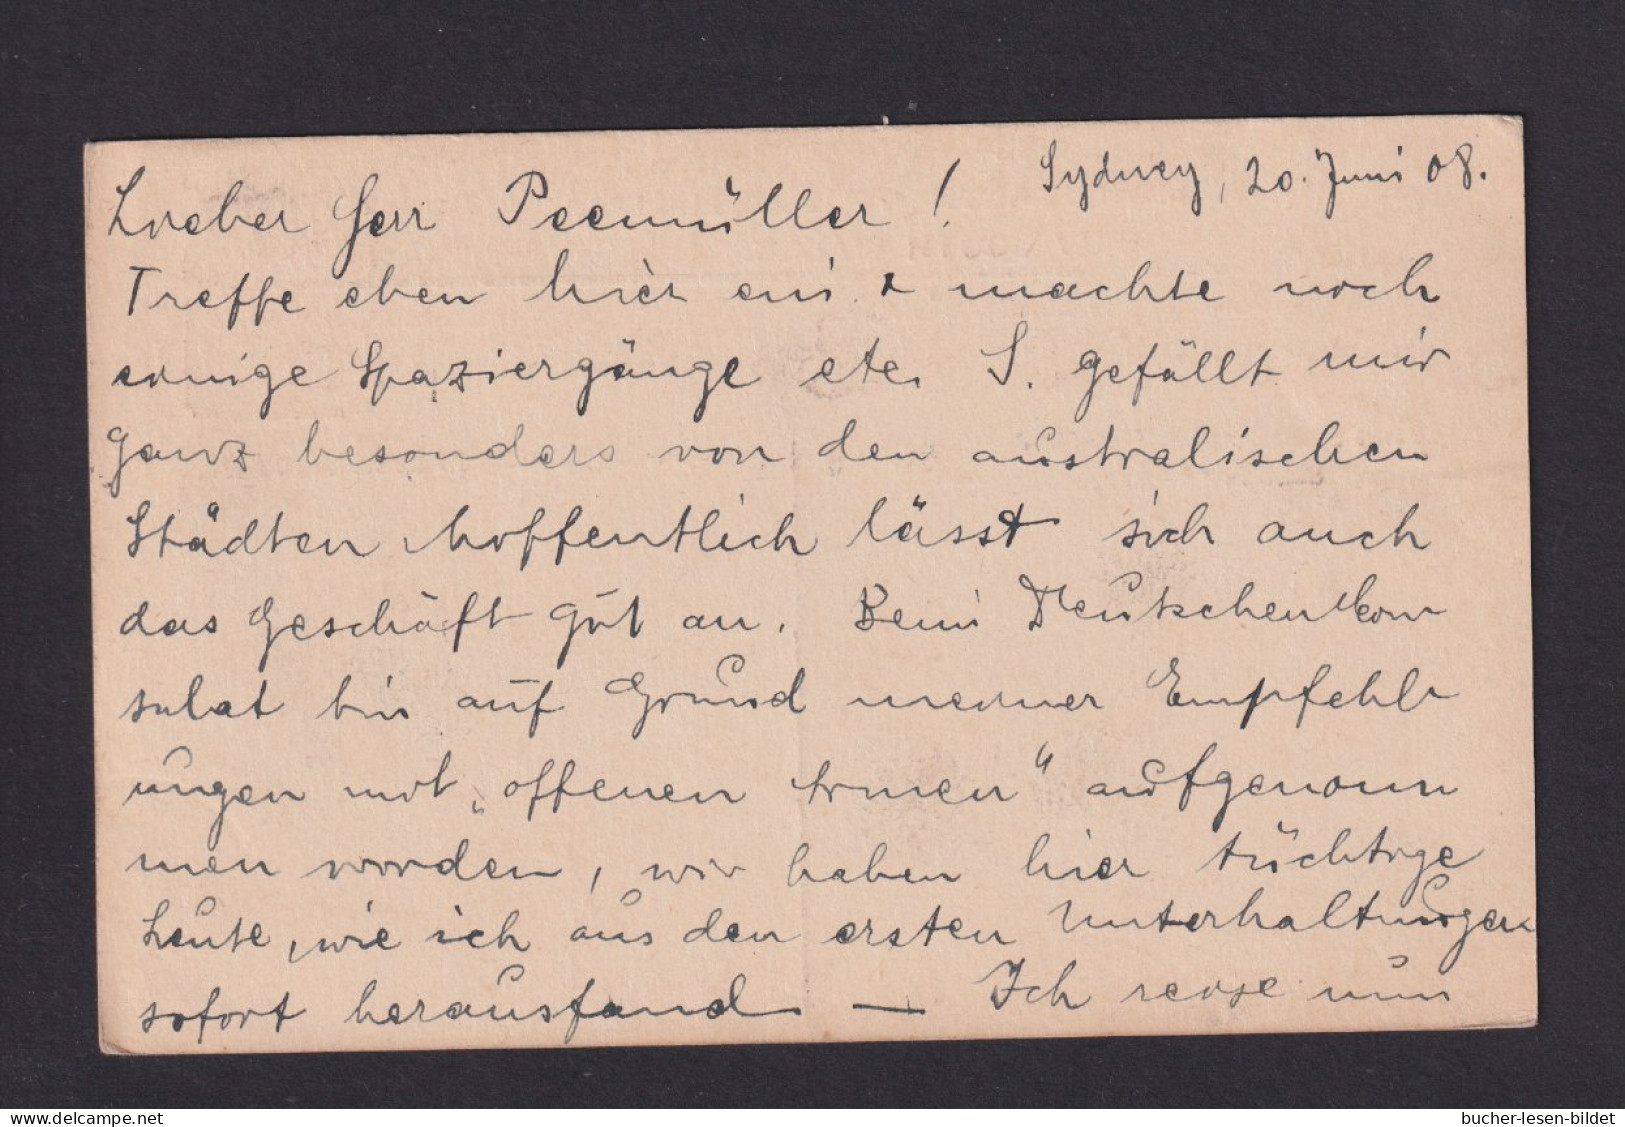 Sydney, 20. Juni 08.
Lieber Herr Peemüller!
Treffe eben hier ein & machte noch
einige Spaziergänge etc. S. gefällt mir
ganz besonders von den australischen
Städten hoffentlich lässt sich auch
das Geschäft gut an. Beim Deutschen Kon
sulat bin auf Grund meiner Empfehl
ungen mit „offenen Armen“ aufgenom
men worden, wir haben hier tüchtige
Leute, wie ich aus den ersten Unterhaltungen
sofort herausfand — Ich reise nun
delcampe.net
bucher-lesen-bildet